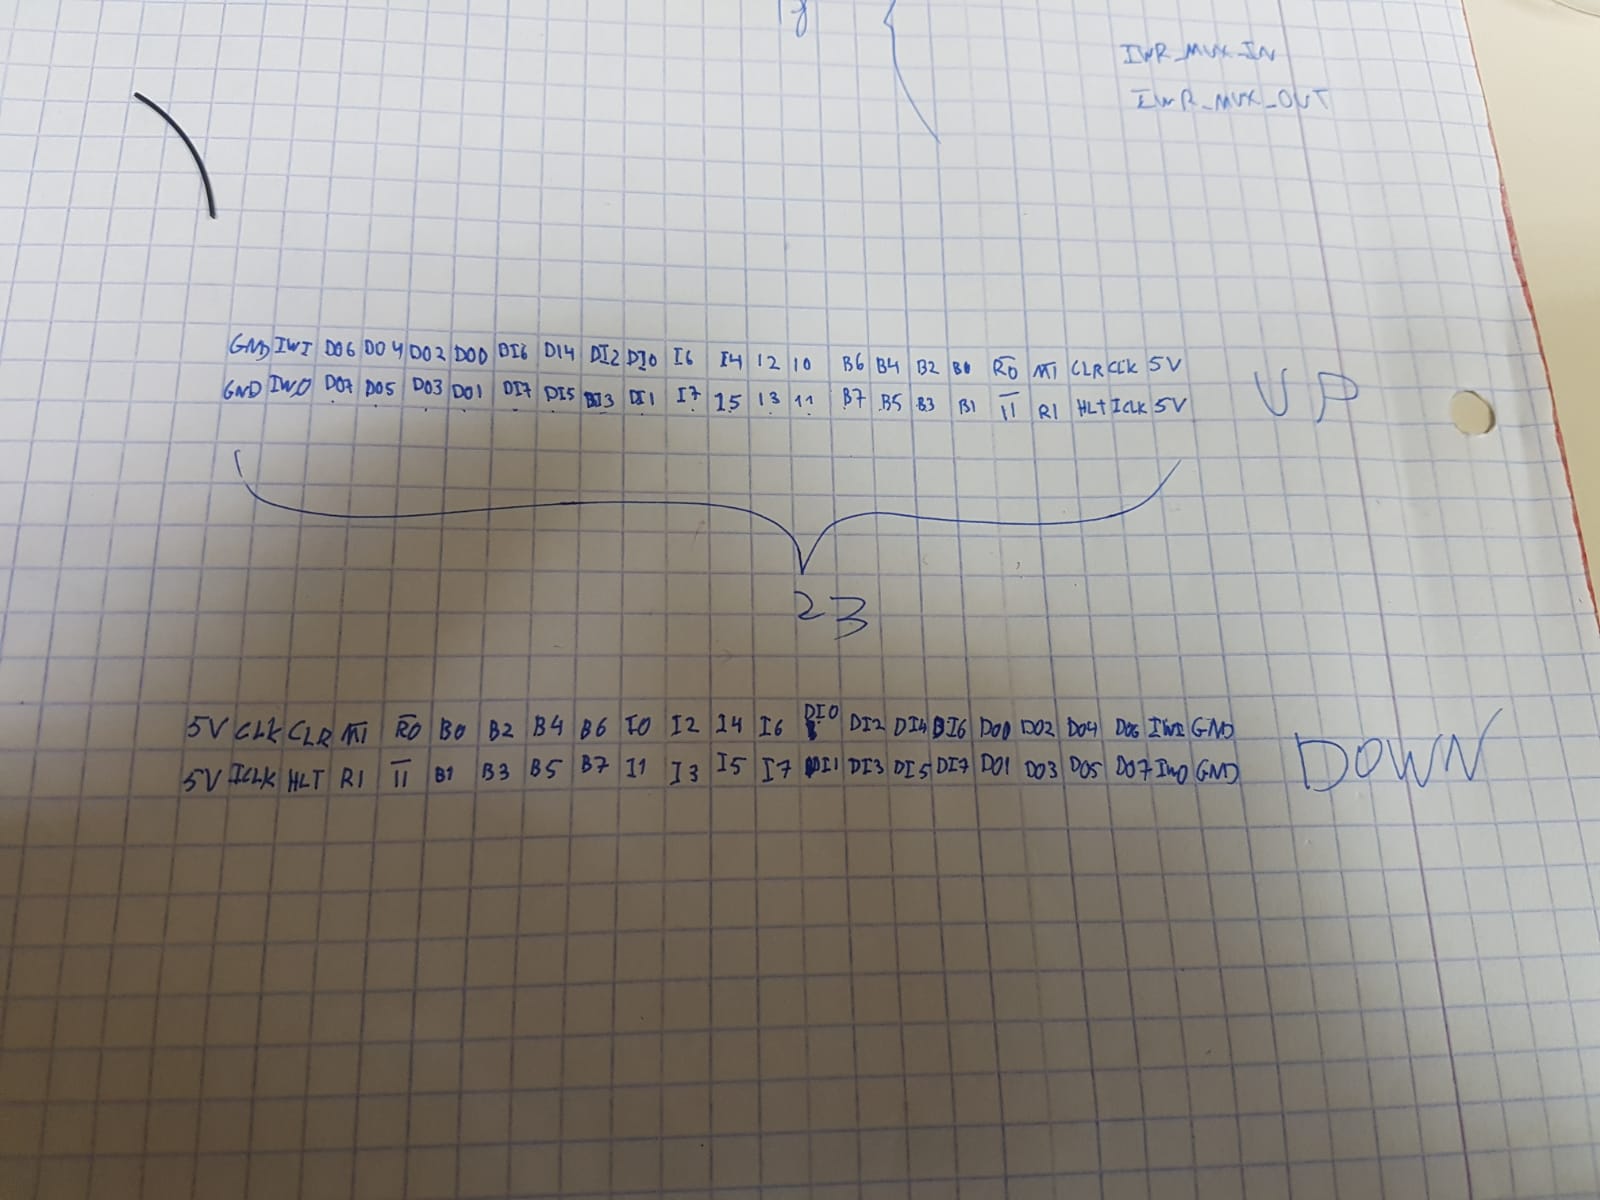 IWR_MUX_IN
IWR_MUX_OUT
GND IWI DO6 DO4 DO2 DO0 DI6 DI4 DI2 DI0 I6 I4 I2 I0 B6 B4 B2 B0 R̅O̅ M̅I̅ CLR CLK 5V
GND IWO DO7 DO5 DO3 DO1 DI7 DI5 DI3 DI1 I7 I5 I3 I1 B7 B5 B3 B1 I̅I̅ RI HLT ICLK 5V
UP
23
5V CLK CLR M̅I̅ R̅O̅ B0 B2 B4 B6 I0 I2 I4 I6 DI0 DI2 DI4 DI6 DO0 DO2 DO4 DO6 IWI GND
5V ICLK HLT RI I̅I̅ B1 B3 B5 B7 I1 I3 I5 I7 DI1 DI3 DI5 DI7 DO1 DO3 DO5 DO7 IWO GND
DOWN